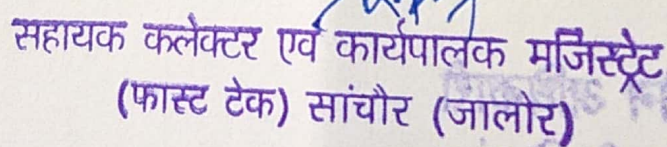 सहायक कलेक्टर एवं कार्यपालक मजिस्ट्रेट
(फास्ट टेक) सांचौर (जालोर)